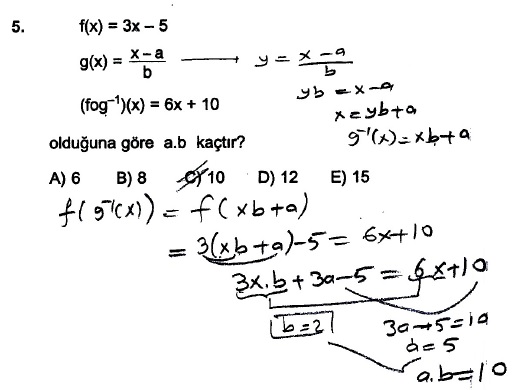 5. f(x) = 3x – 5
g(x) = x–a / b → y = x–a / b
yb = x–a
x = yb+a
(fog⁻¹)(x) = 6x + 10
g⁻¹(x) = xb+a
olduğuna göre a.b kaçtır?
A) 6 B) 8 C) 10 D) 12 E) 15
f(g⁻¹(x)) = f(xb+a)
= 3(xb+a)–5 = 6x+10
3x.b + 3a–5 = 6x+10
b=2
3a–5=10
a=5
a.b=10